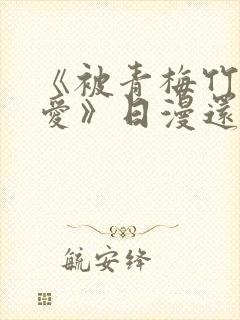 《被青梅竹
愛》日漫還
毓安绛